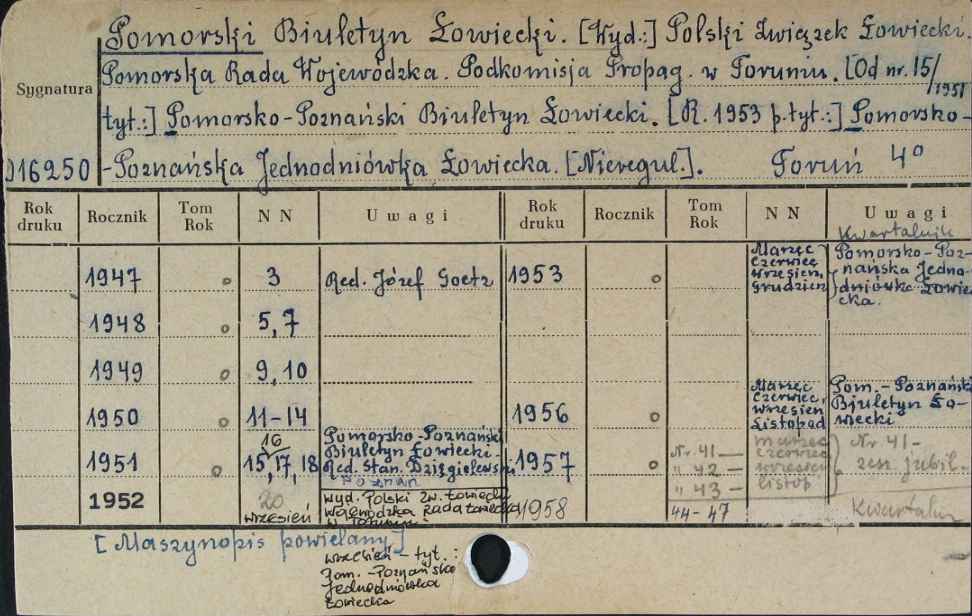 Pomorski Biuletyn Łowiecki. [Wyd.:] Polski Związek Łowiecki.
Pomorska Rada Wojewódzka. Podkomisja Propag. w Toruniu. [Od nr. 15/1951
Sygnatura
tyt.:] Pomorsko-Poznański Biuletyn Łowiecki. [R. 1953 p.tyt.:] Pomorsko-
016250 -Poznańska Jednodniówka Łowiecka. [Nieregul.]. Toruń 4°
Rok druku Rocznik Tom Rok NN Uwagi Rok druku Rocznik Tom Rok NN Uwagi
Kwartalnik
1947 o 3 Red. Józef Goetz 1953 o Marzec Czerwiec Wrzesień, Grudzień Pomorsko-Poz-
nańska Jedno-
dniówka Łowie-
cka.
1948 o 5, 7
1949 o 9, 10
1950 o 11-14 1956 o Marzec Czerwiec, Wrzesień Listopad Pom.-Poznański
Biuletyn Ło-
wiecki
1951 o 15, 16, 17, 18 Pomorsko-Poznański
Biuletyn Łowiecki-
Red. Stan. Dzięgielewski
Poznań
1957 o Nr. 41 — marzec
" 42 — czerwiec
" 43 — wrzesień
listop
Nr 41-
zesz. jubil.
1952 20 wrzesień wyd. Polski Zw. Łowiecki
Wojewódzka Rada Łowiecka
w Toruniu
1958 44-47 Kwartaln
[Maszynopis powielany]
wrzesień - tyt.:
Pom.-Poznańska
Jednodniówka
Łowiecka